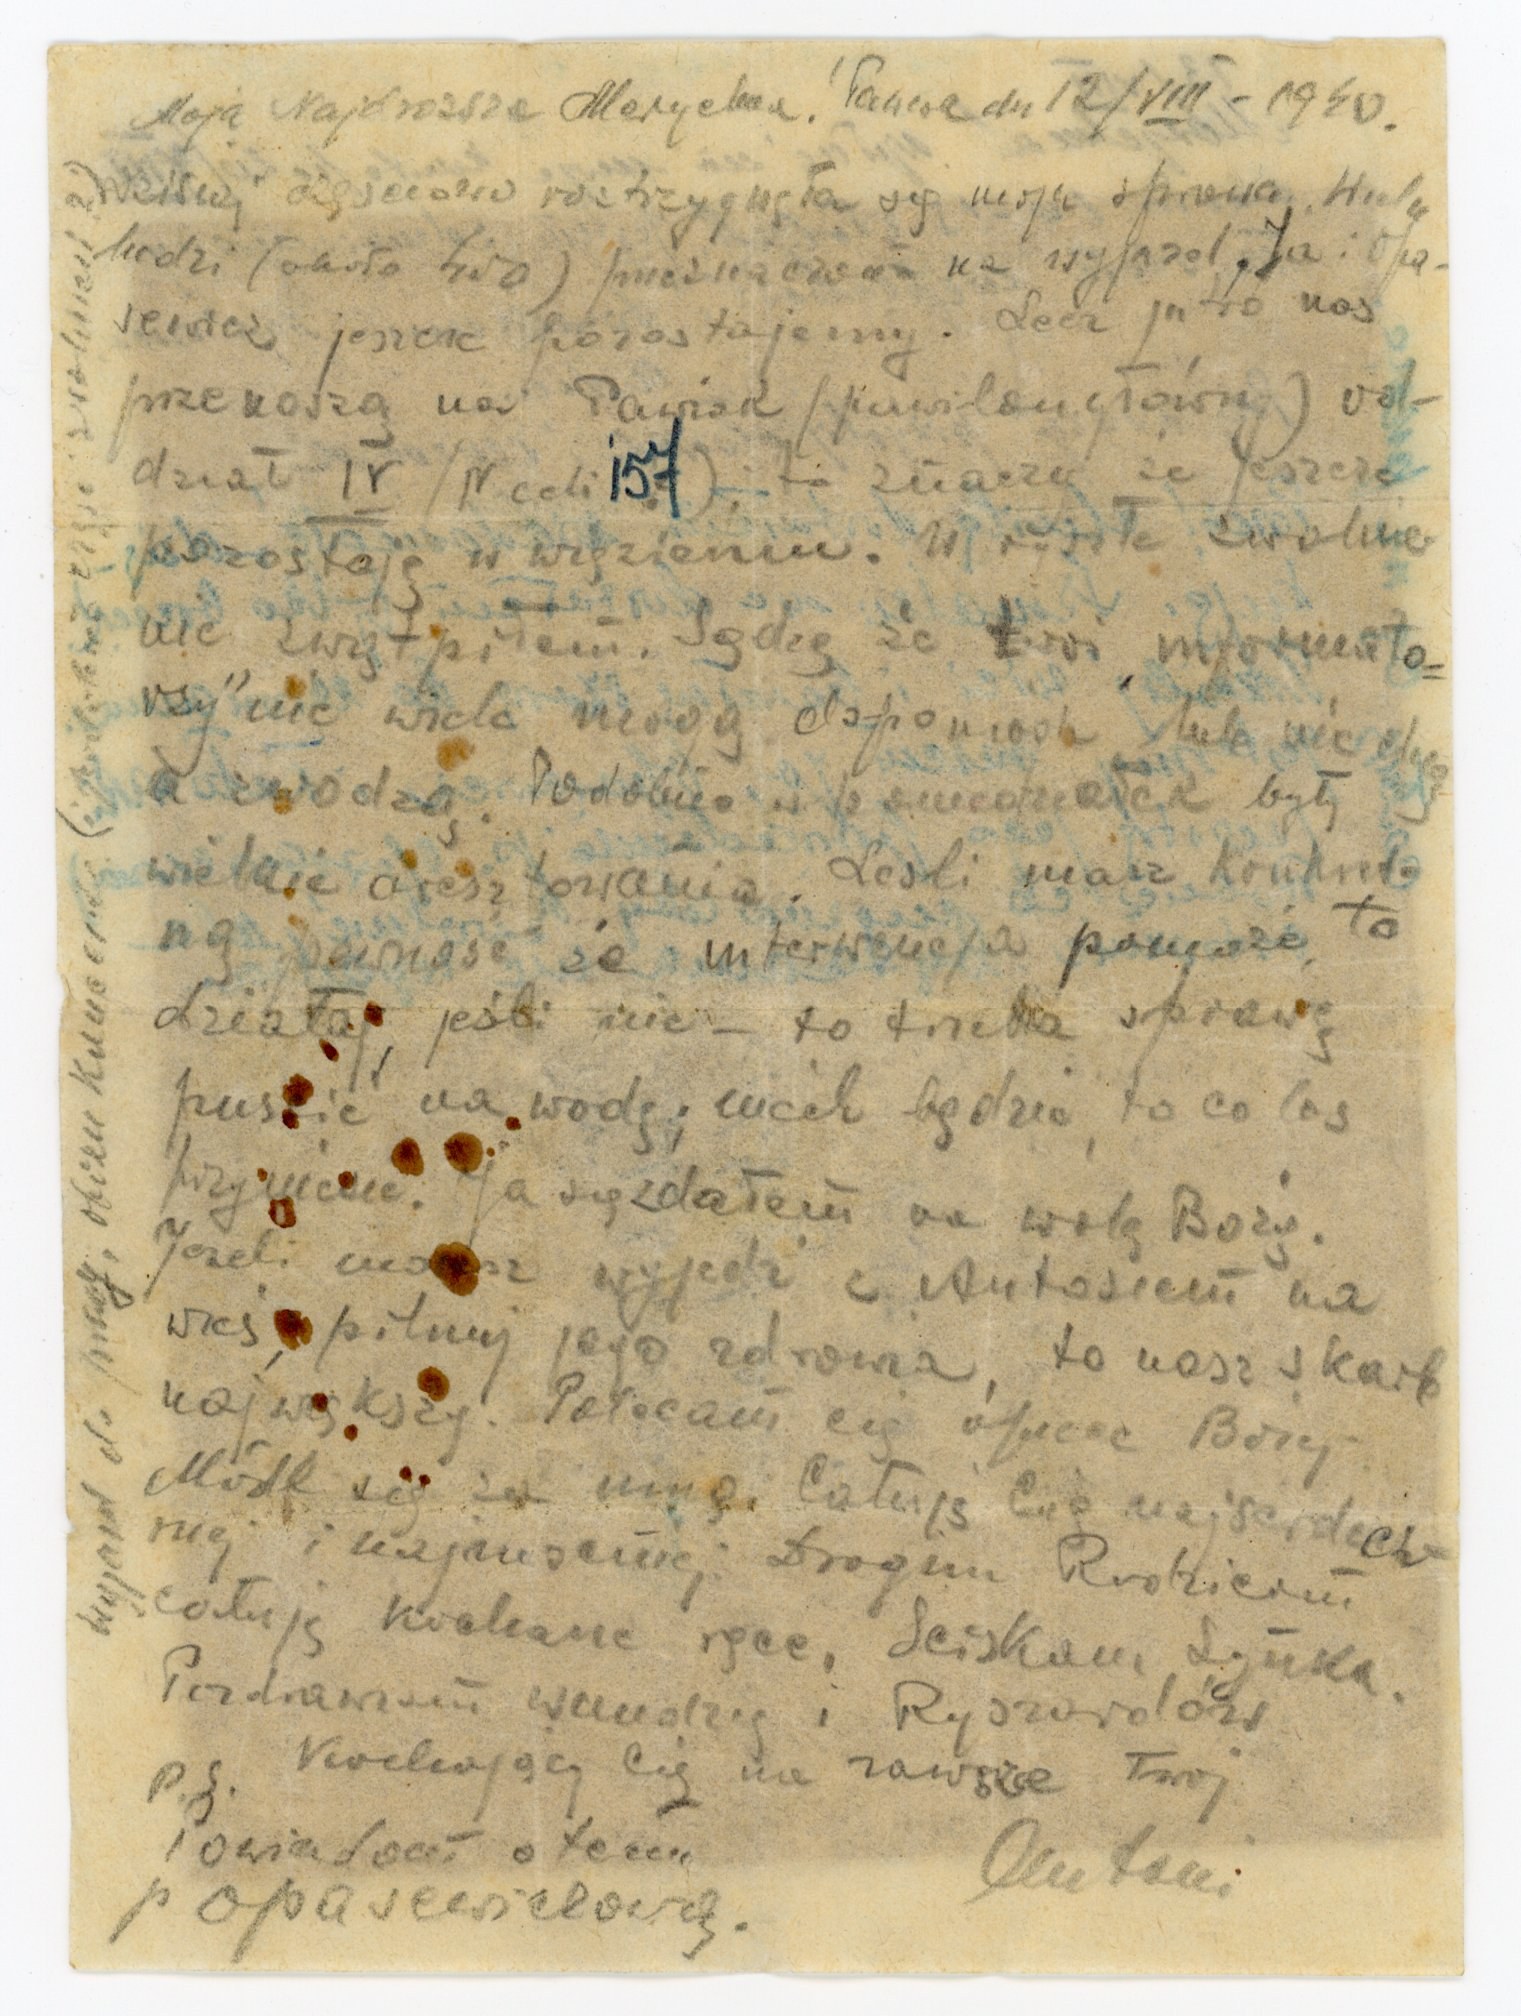 Moja Najdrozsza Marychna! Pawiak dn 12/VIII - 1940.
Dzisiaj częściowo rozstrzygnęła się moja sprawa. Wielu
ludzi (około 400) przeznaczono na wyjazd. Ja i Opa-
sewicz jeszcze pozostajemy. Lecz jutro nas
przenoszą na Pawiak (pawilon główny) od-
dział IV (N celi 157); to znaczy że jeszcze
pozostaję w więzieniu. W rychłe zwolnie-
nie zwątpiłem. Sądzę że twoi „informato-
rzy" nie wiele mogą dopomóc lub nie chcą
a zwodzą. Podobno w poniedziałek były
wielkie aresztowania. Jeśli masz konkret-
ną pewność że interwencja pomoże, to
działaj, jeśli nie – to trzeba sprawę
puścić na wodę; niech będzie, to co los
przyniesie. Ja się zdałem na wolę Bożą.
Jeżeli możesz wyjedź z Antosiem na
wieś, pilnuj jego zdrowia, to nasz skarb
największy. Polecam cię opiece Bożej.
Módl się za mną. Całuję Cię najserdecz-
niej i najmocniej. Drogim Rodzicom
całuję kochane ręce, Sciskam Synka.
Pozdrawiam Wandzię i Ryszardów
Kochający Cię na zawsze Twój
Antoni
P.S.
Powiadom o tem
p Opasewiczową.
wyjazd do pracy, obozu